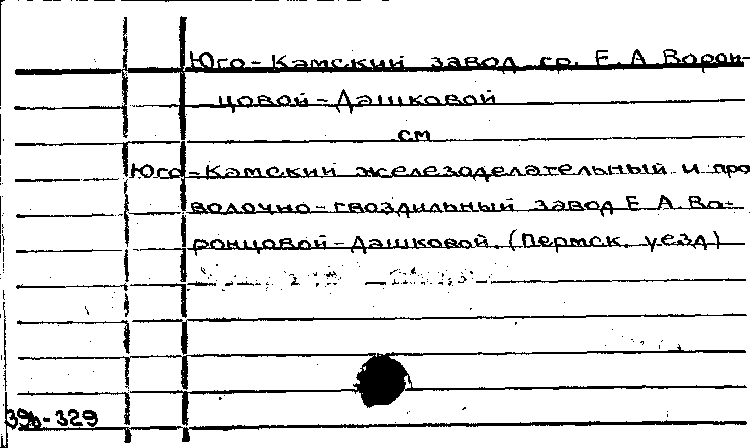 Юго-Камский завод гр. Е. А Ворон-
цовой-Дашковой
см
Юго-Камский железоделательный и про
волочно-гвоздильный завод Е. А. Во-
ронцовой-Дашковой. (Пермск. уезд)
39б-329